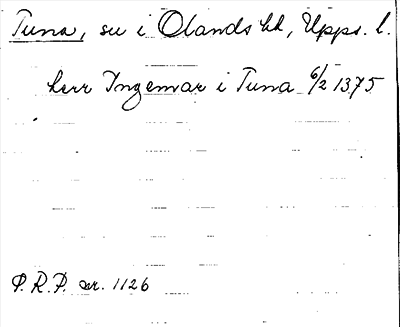 Tuna, su i Olands hd, Upps. l.
herr Ingemar i Tuna 6/2 1375
P.R.P. nr. 1126